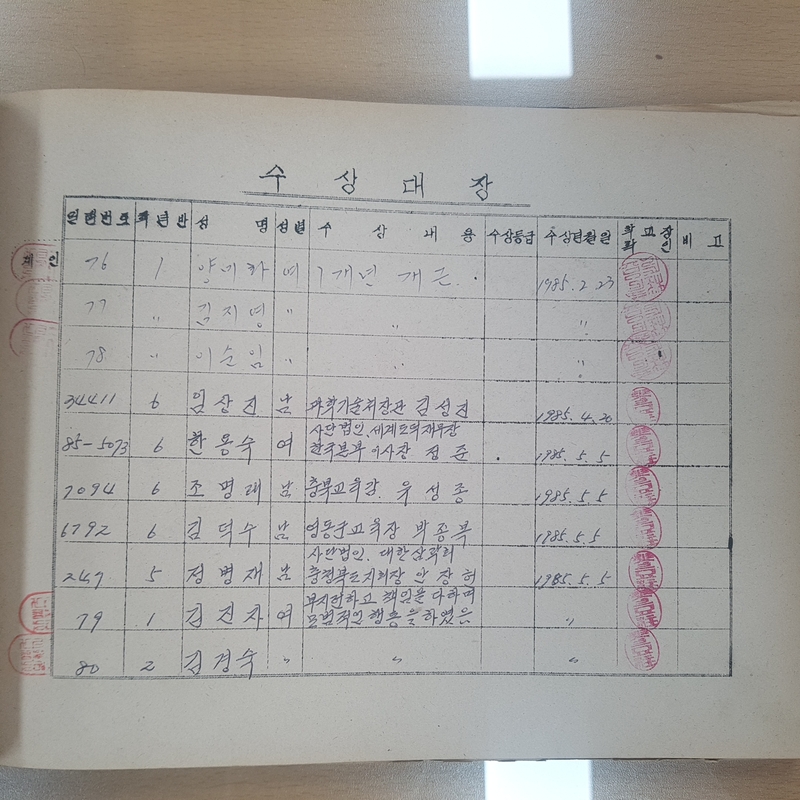 수 상 대 장
일련번호 학년반 성 명 성별 수 상 내 용 수상등급 수상년월일 학교장 확인 비 고
76 1 양미자 여 1개년 개근. 1985.2.23
77 〃 김지영 〃 〃 〃
78 〃 이순임 〃 〃 〃
34411 6 임산진 남 과학기술처장관 김성진 1985.4.20
85-5073 6 한용숙 여 사단법인.세계도의재무장
한국본부 이사장 정준 1985.5.5
7094 6 조명래 남 충북교육감. 유성종 1985.5.5
6792 6 김덕수 남 영동군교육장 박종복 1985.5.5
247 5 정병재 남 사단법인. 대한삼락회
충청북도지회장 안장헌 1985.5.5
79 1 김진자 여 책임을 다하며
모범적인 행동을 하였음 〃
80 2 김경숙 〃 〃 〃